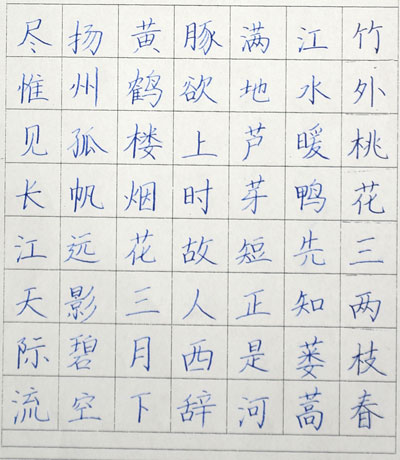 竹外桃花三两枝春
江水暖鸭先知蒌蒿
满地芦芽短正是河
豚欲上时故人西辞
黄鹤楼烟花三月下
扬州孤帆远影碧空
尽惟见长江天际流